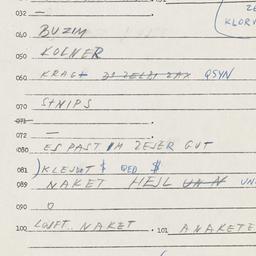 032 —
040 BUZIM
050 KOLNER
060 KRAGT QSYN
070 STNIPS
071
072 —
080 ES PAST IM ZEJER GUT
081 )KLEJDT $ QED $
089 NAKET HEJL UN
090 O
100 LOJFT NAKET. 101 ANAKETE
KLOR